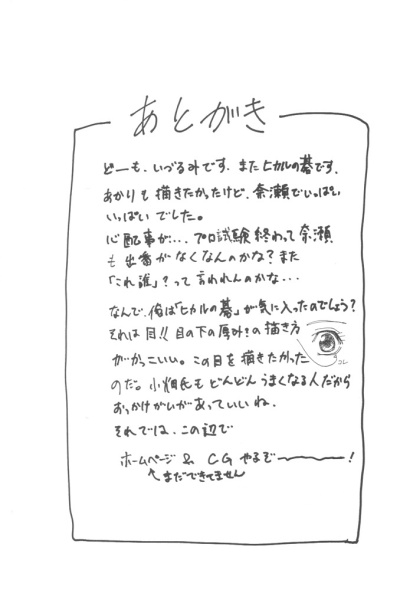 あとがき
どーも、いづるみです。またヒカルの碁です。
あかりも描きたかったけど、奈瀬でいっぱい
いっぱいでした。
心配事が…。プロ試験終わって奈瀬
も出番がなくなんのかな?また
「これ誰」?って言われんのかな…
なんで、俺は「ヒカルの碁」が気に入ったのでしょう?
それは目!!目の下の厚み!の描き方
がかっこいい。この目を描きたかった
コレ
のだ。小畑氏もどんどんうまくなる人だから
おっかけがいがあっていいね。
それでは、この辺で
ホームページ & CG やるぞー!
まだできてません